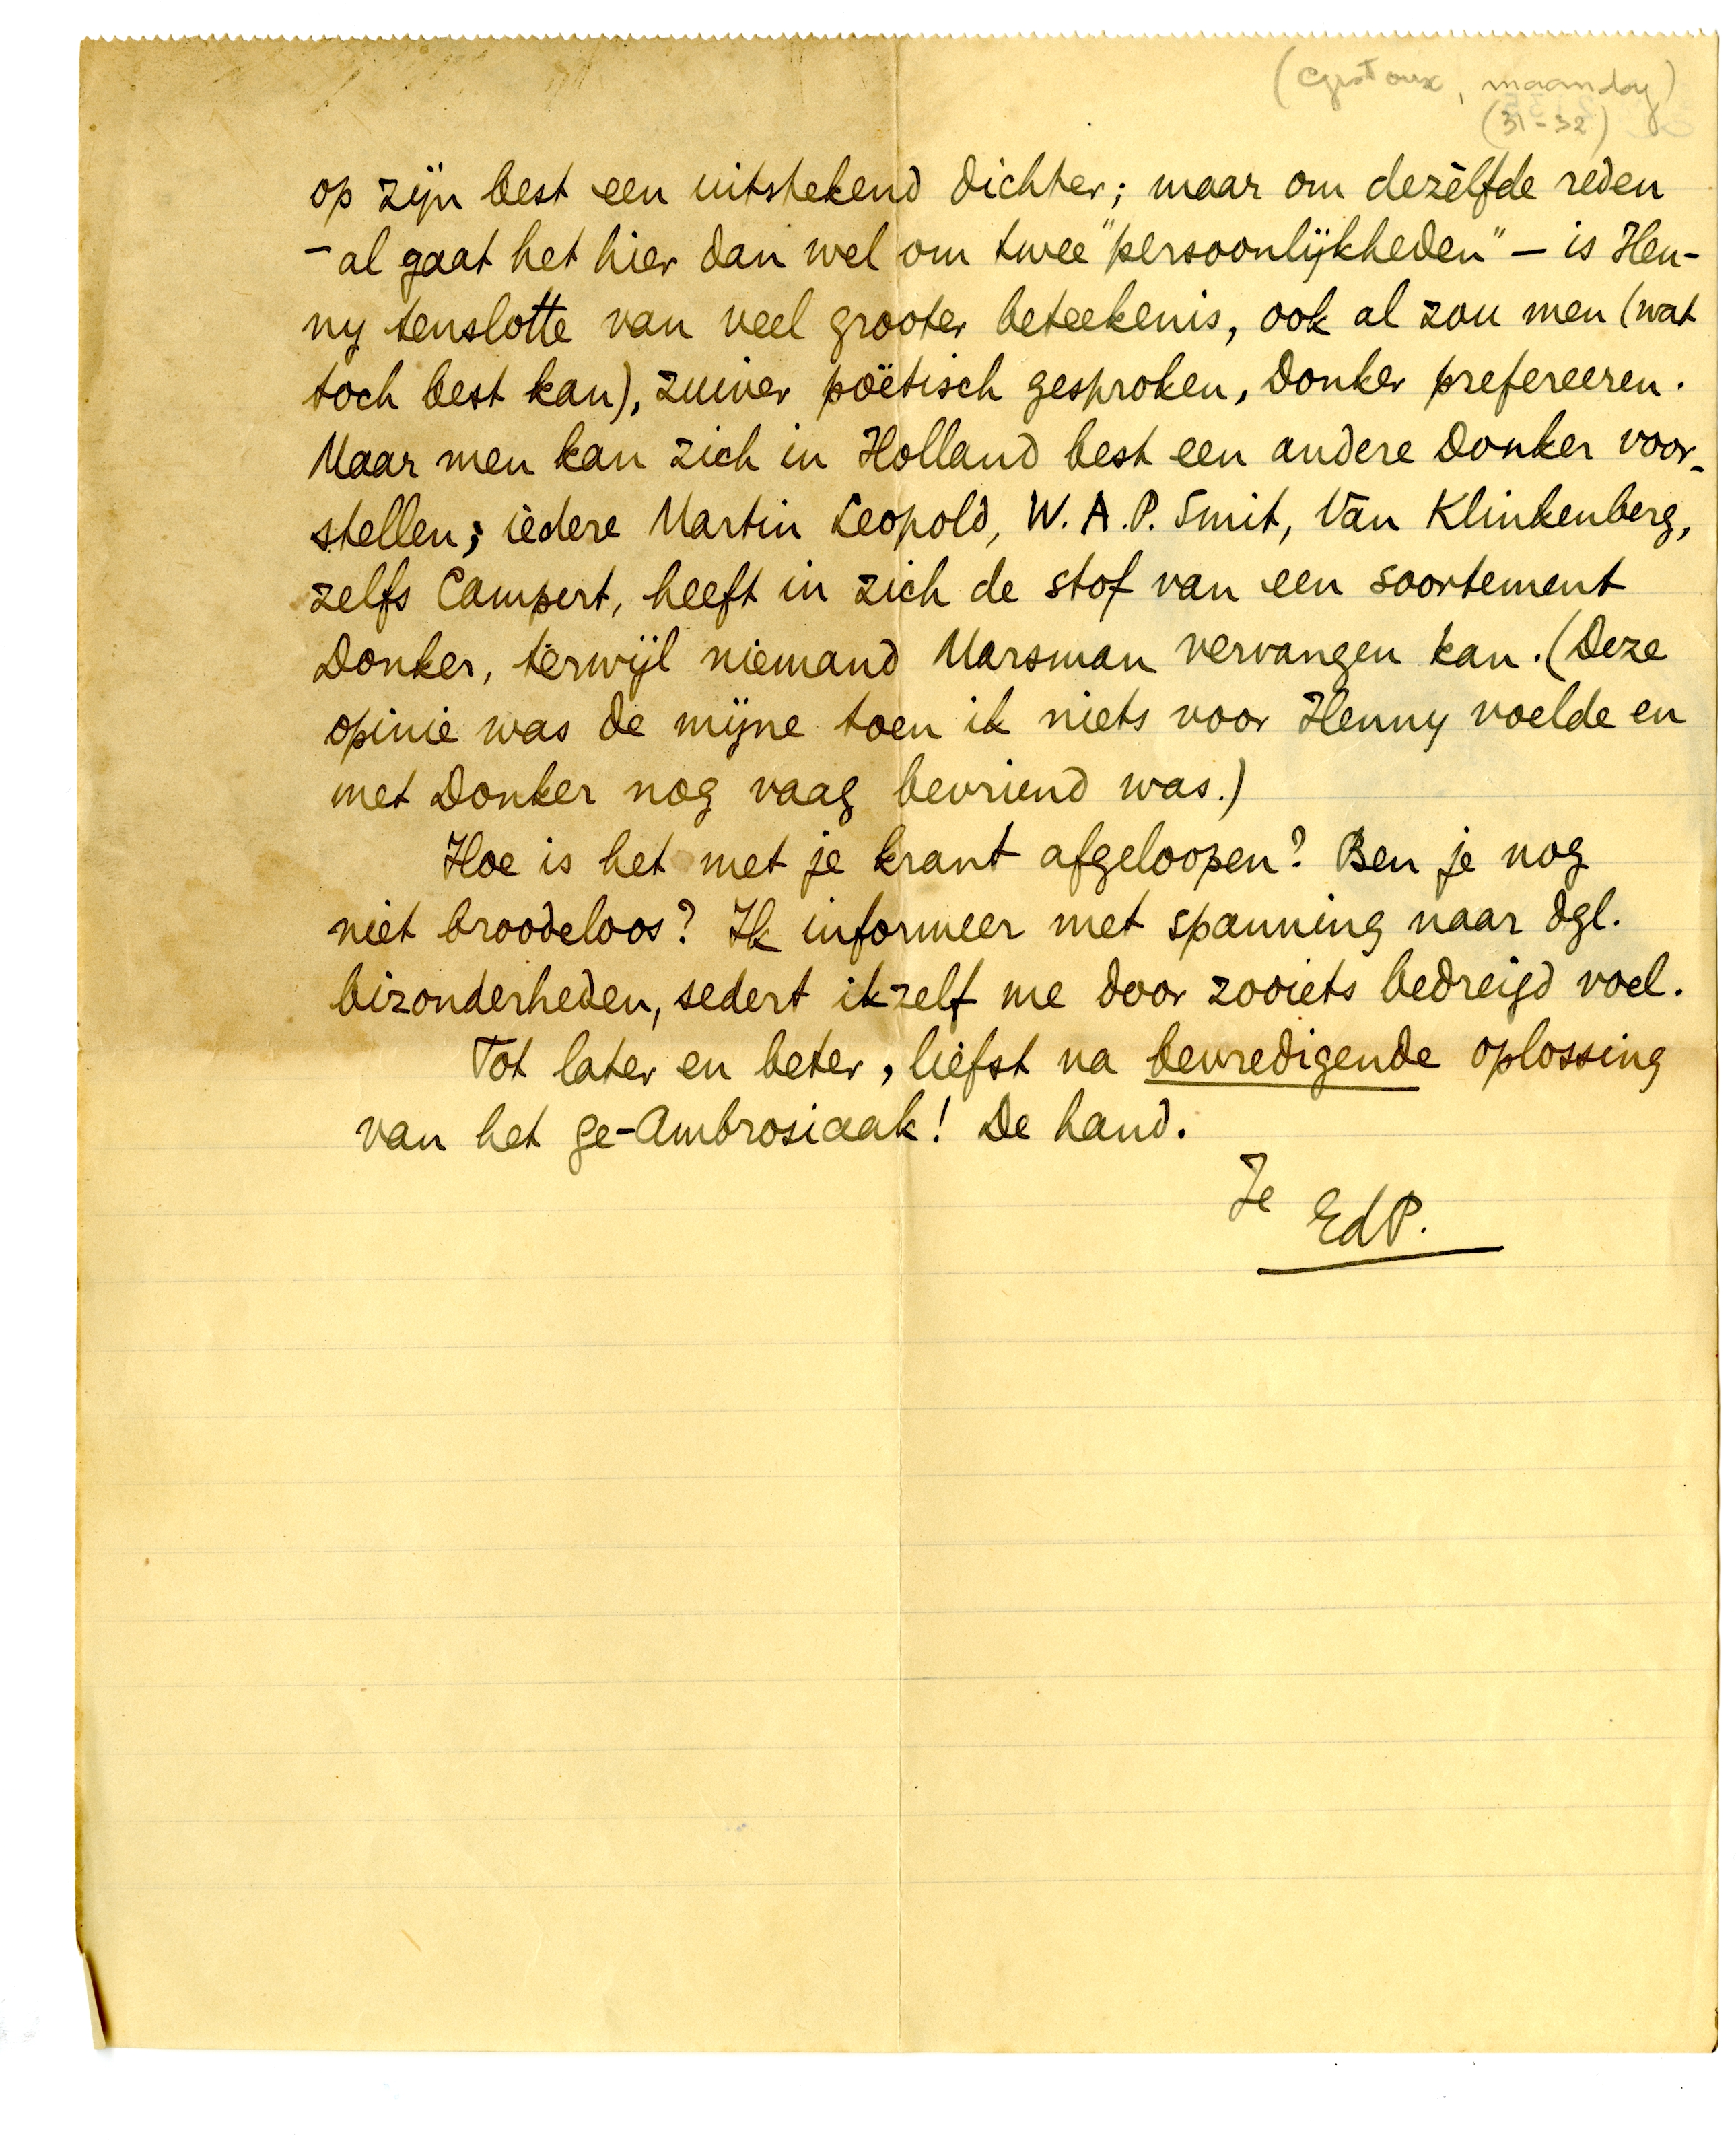 (Gistoux, maandag)
(31-32)
op zijn best een uitstekend dichter; maar om dezèlfde reden
– al gaat het hier dan wel om twee "persoonlijkheden" – is Hen-
ny tenslotte van veel grooter beteekenis, ook al zou men (wat
toch best kan), zuiver poëtisch gesproken, Donker prefereeren.
Maar men kan zich in Holland best een andere Donker voor-
stellen; iedere Martin Leopold, W.A.P. Smit, Van Klinkenberg,
zelfs Campert, heeft in zich de stof van een soortement
Donker, terwijl niemand Marsman vervangen kan. (Deze
opinie was de mijne toen ik niets voor Henny voelde en
met Donker nog vaag bevriend was.)
Hoe is het met je krant afgeloopen? Ben je nog
niet broodeloos? Ik informeer met spanning naar dgl.
bizonderheden, sedert ikzelf me door zooiets bedreigd voel.
Tot later en beter, liefst na bevredigende oplossing
van het ge-Ambrosiaak! De hand.
Je
EdP.